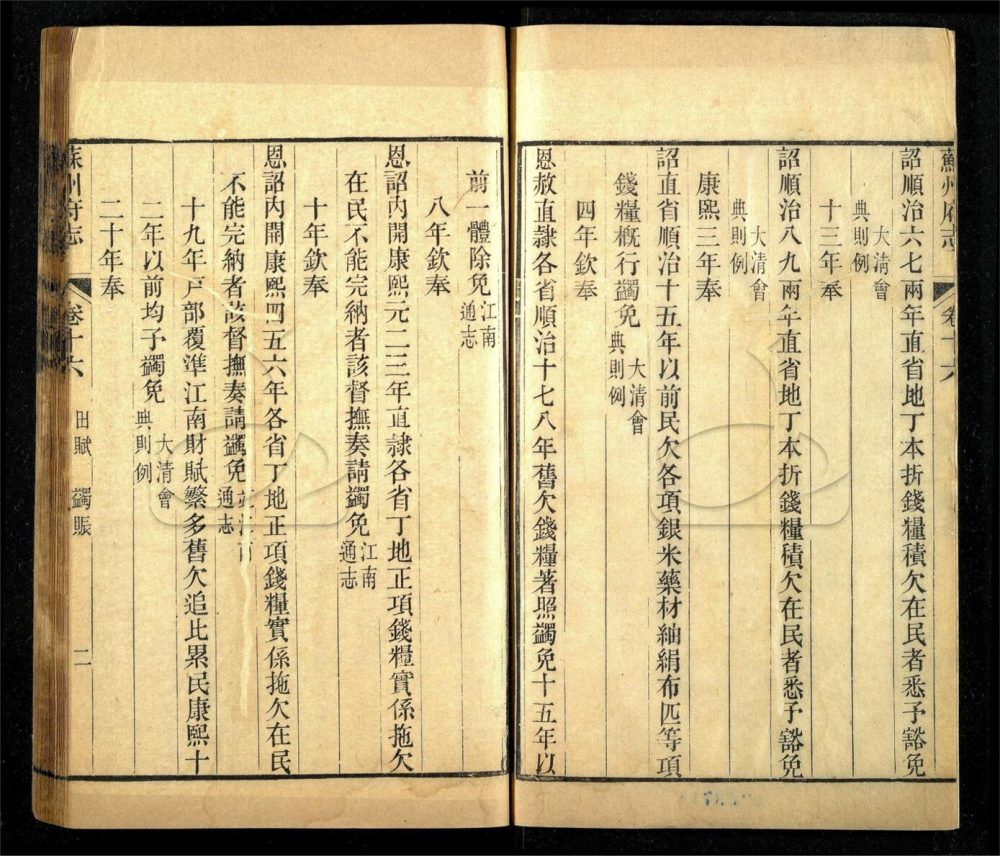 蘇州府志
卷十六
詔順治六七兩年直省地丁本折錢糧積欠在民者悉予豁免
大清會
典則例
十三年奉
詔順治八九兩年直省地丁本折錢糧積欠在民者悉予豁免
大清會
典則例
康熙三年奉
詔直省順治十五年以前民欠各項銀米藥材紬絹布匹等項
錢糧概行蠲免
大清會
典則例
四年欽奉
恩赦直隸各省順治十七八年舊欠錢糧著照蠲免十五年以
前一體除免
江南
通志
八年欽奉
恩詔內開康熙元二三年直隸各省丁地正項錢糧實係拖欠
在民不能完納者該督撫奏請蠲免
江南
通志
十年欽奉
恩詔內開康熙四五六年各省丁地正項錢糧實係拖欠在民
不能完納者該督撫奏請蠲免
江南
通志
十九年戶部覆準江南財賦繁多舊欠追比累民康熙十
二年以前均予蠲免
大清會
典則例
二十年奉
蘇州府志
卷十六
田賦
蠲賑
二